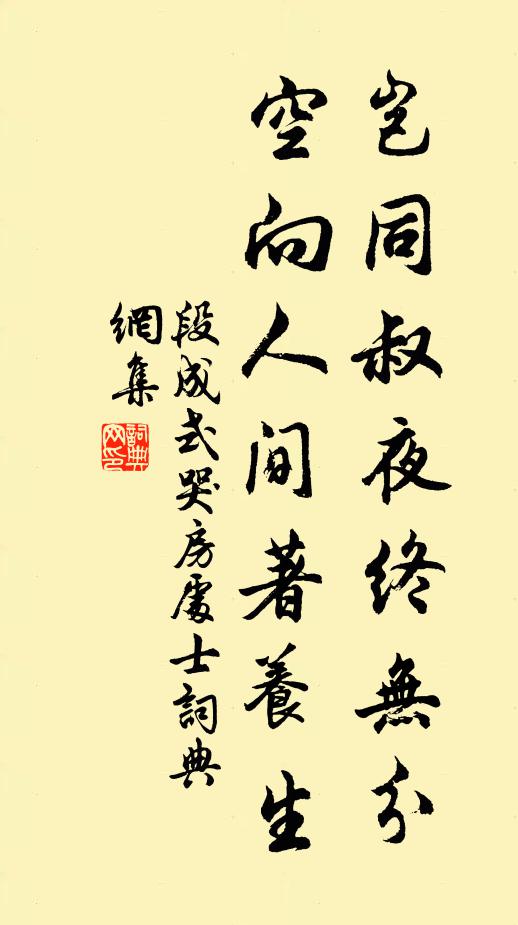 豈同叔夜終無分
空向人間著養生
段成式哭房處士詞典
網集
詞典
网印